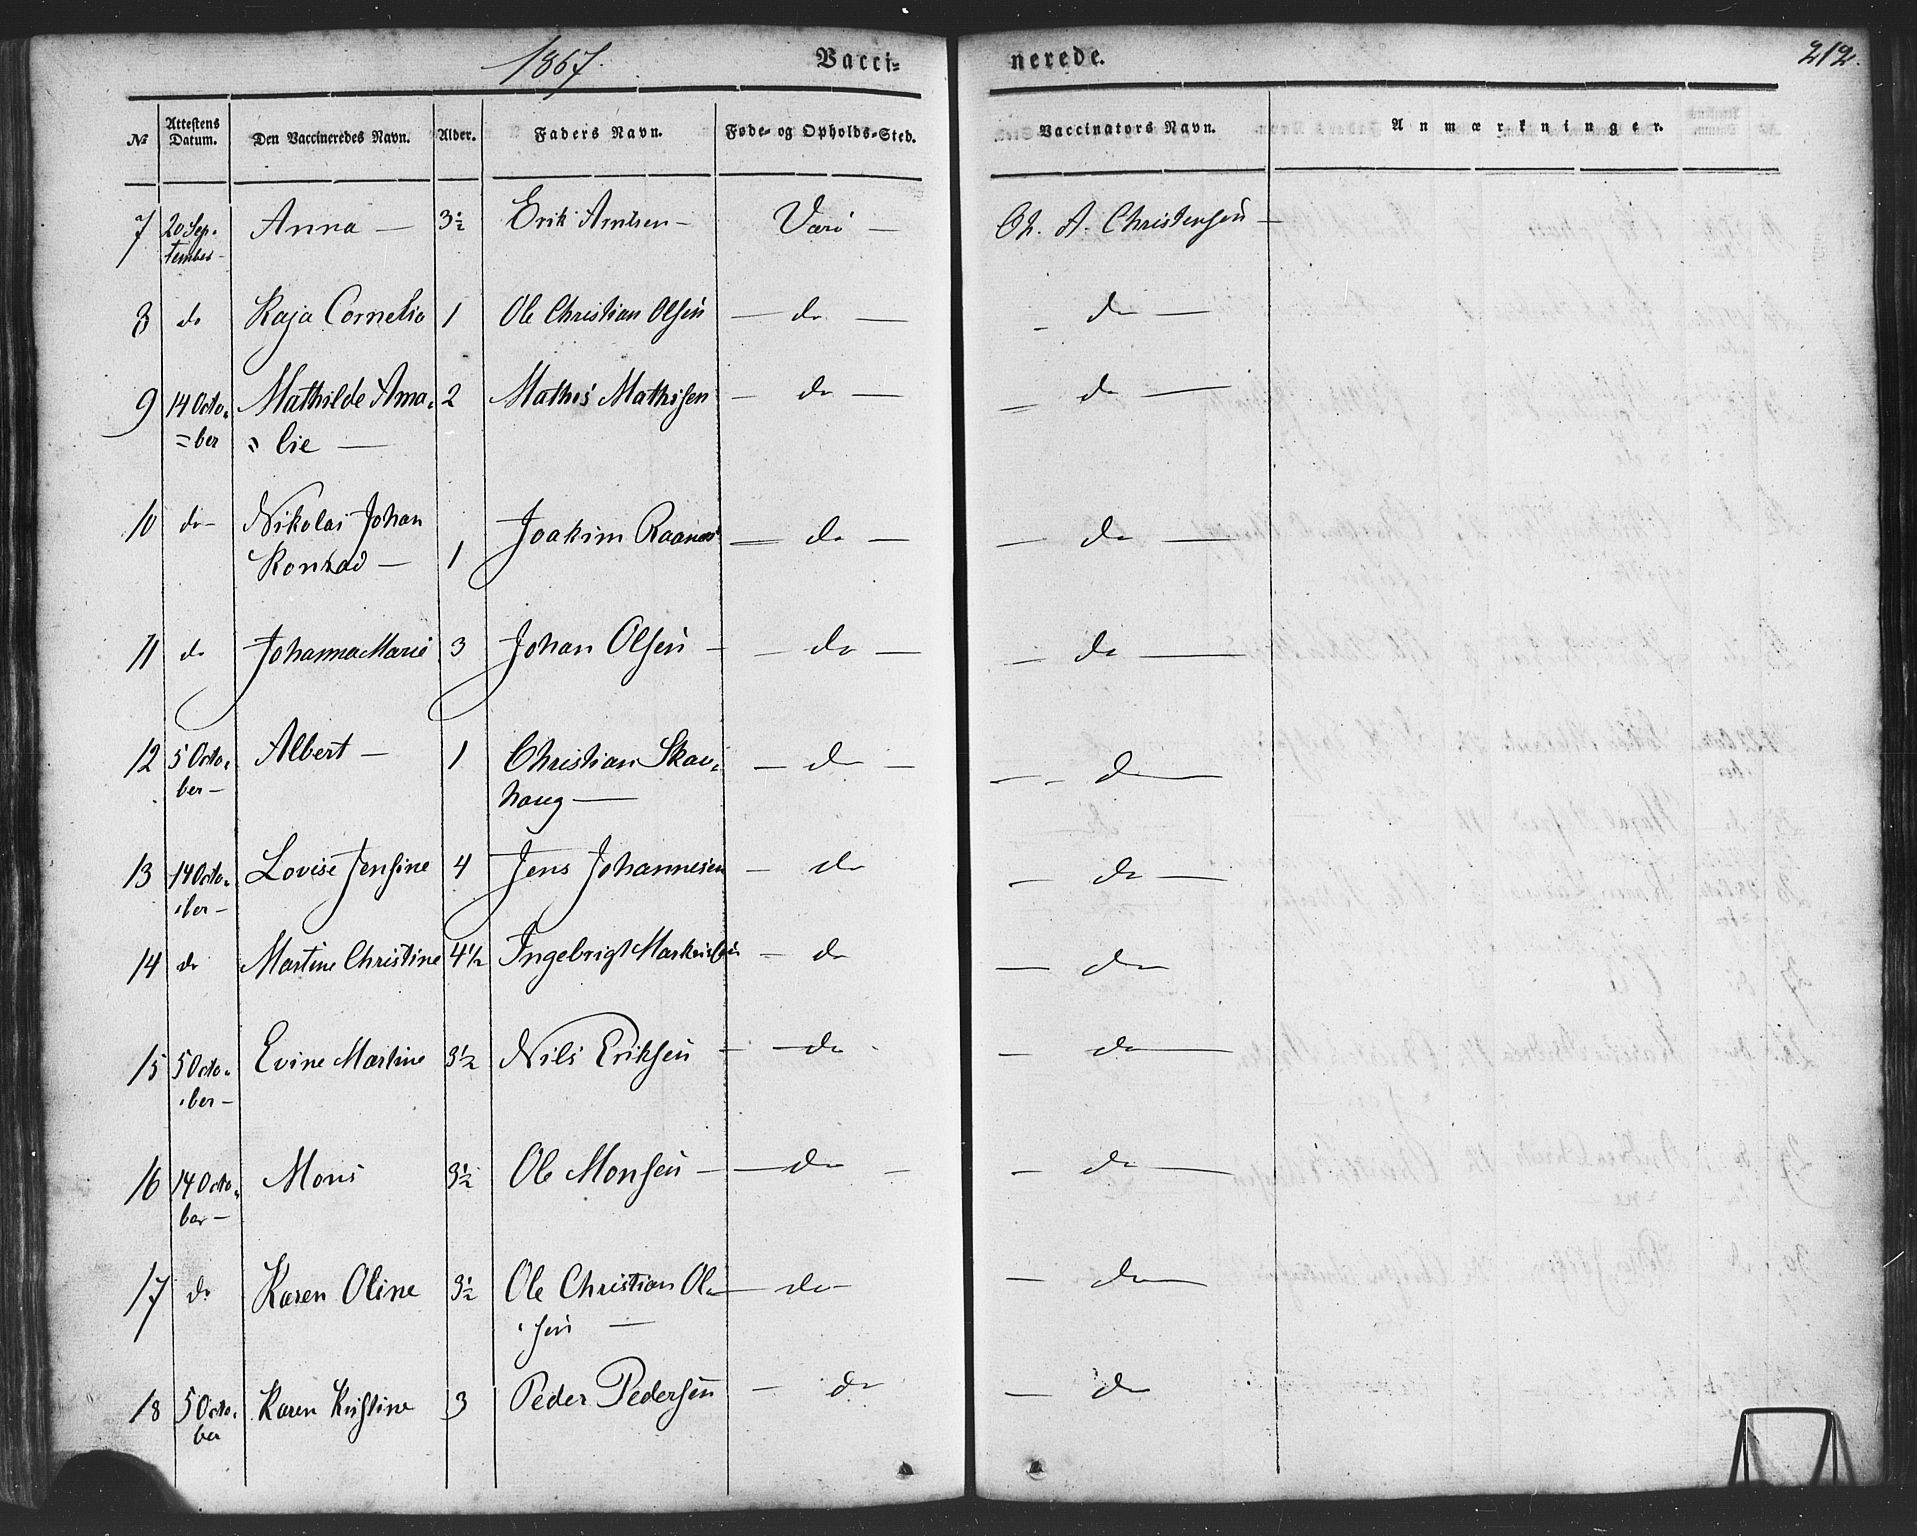 1867. Vacci- nerede. 212.
№ Attestens Datum. Den Vaccineredes Navn. Alder. Faders Navn. Føde- og Opholds-Sted. Vaccinators Navn. Anmærkninger.
7 20 Sep- Anna — 3½ Erik Arntsen — Værö — Ch. A. Christensen —
tember
8 do Kaja Cornelia 1 Ole Christian Olsen — do — — do —
9 14 Octo- Mathilde Ama- 2 Mathis Mathisen — do — — do —
=ber = lie —
10 do — Nikolai Johan Joakim — do — — do —
Konrad — 1
11 do Johanna Marie 3 Johan Olsen — — do — — do —
12 5 Octo- Albert — 1 Christian Skav- — do — — do —
ber — haug —
13 14 Octo- Lovise Jensine 4 Jens Johannesen — do — do —
ber —
14 do Martine Christine 4½ Ingebrigt — do — do
15 5 Octo- Evine Martine 3½ Nils Eriksen — — do — — do —
ber —
16 14 Octo- Mons 3½ Ole Monsen — — do — — do —
ber —
17 do Karen Oline 3½ Ole Christian Ol- — do — — do —
sen —
18 5 Octo- Karen Kristine 3 Peder Pedersen — do — do
ber